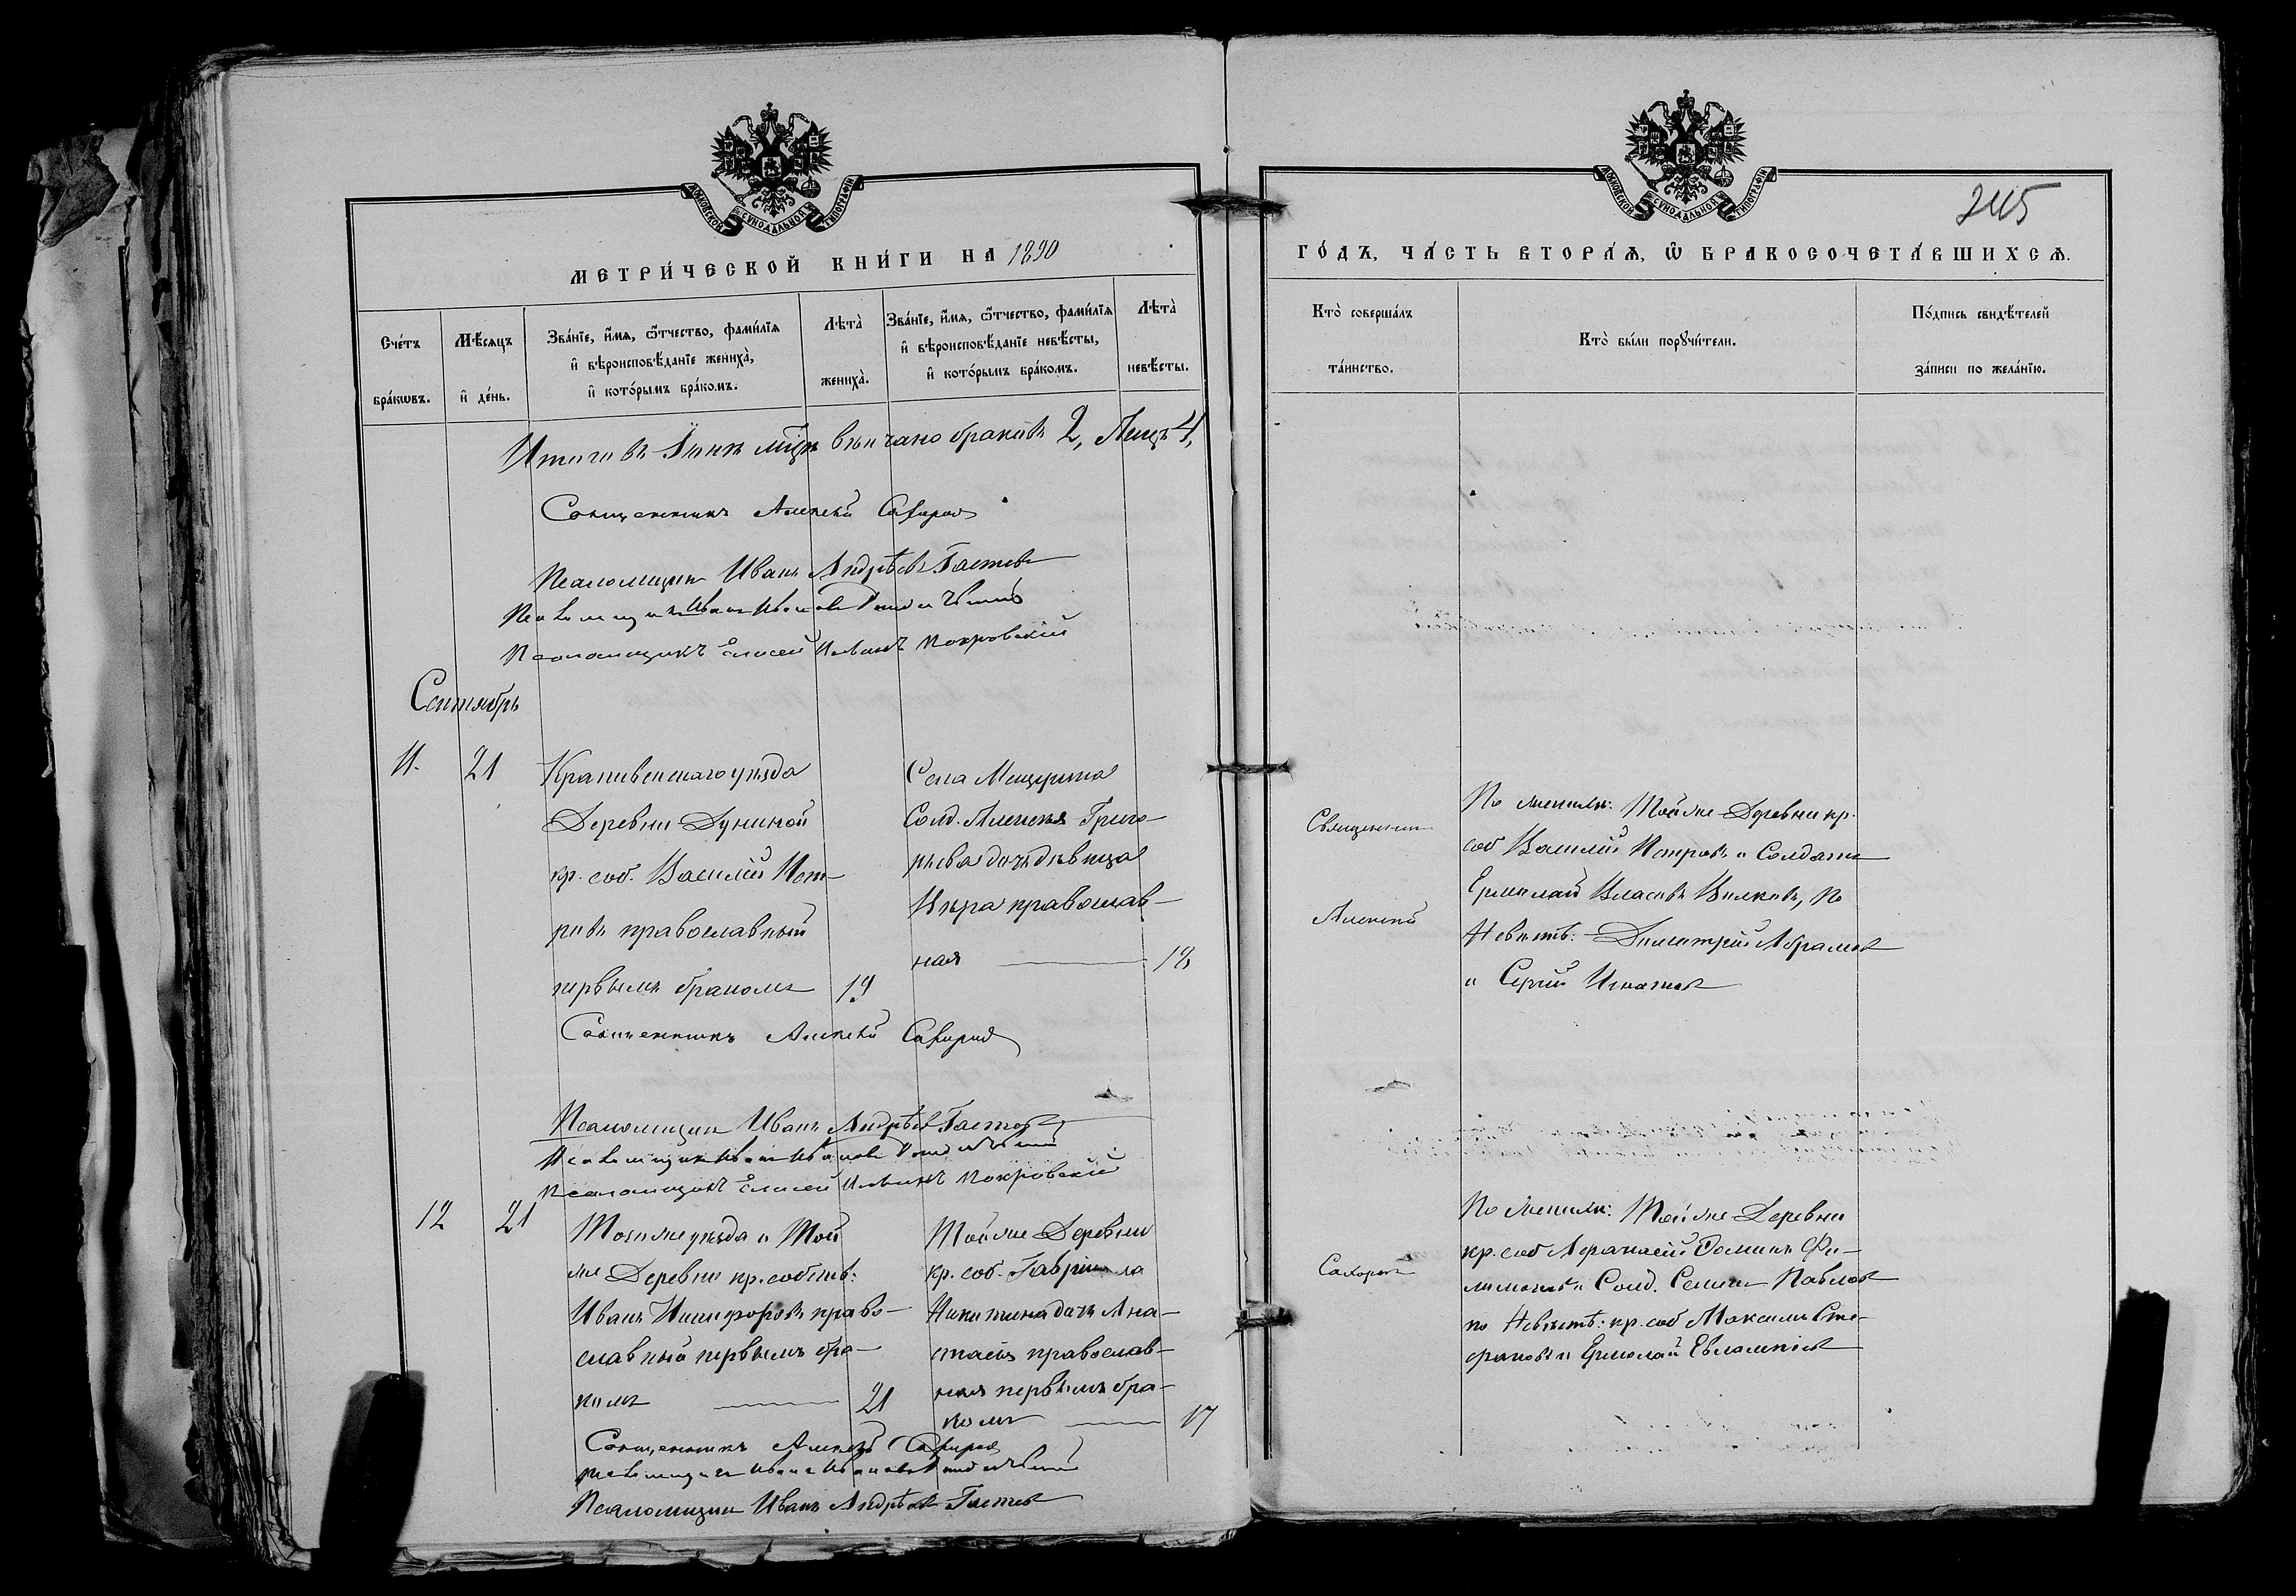 МОСКОВСКОЙ СѴНОДАЛЬНОЙ ТИПОГРАФІИ
МЕТРИ́ЧЕСКОЙ КНИ́ГИ НА 1890
Сче́тъ бра́кѡвъ.
Мѣ́сяцъ и҆ де́нь.
Зва́нїе, и҆́мѧ, ѻ҆́тчество, фами́лїѧ
и҆ вѣроисповѣ́данїе жениха̀,
и҆ кото́рымъ бра́комъ.
Лѣта̀ жениха̀.
Зва́нїе, и҆́мѧ, ѻ҆́тчество, фами́лїѧ
и҆ вѣроисповѣ́данїе невѣ́сты,
и҆ кото́рымъ бра́комъ.
Лѣта̀ невѣ́сты.
Итого въ Іюнѣ мцѣ вѣнчано браковъ 2, Лицъ 4,
Священникъ Алексѣй Сахаров
Псаломщик Иванъ Андрѣевъ Гастев
Псаломщикъ Иванъ Иванов
Псаломщикъ Елисей Ильинъ Покровскій
Сентябрь
11. 21
Крапивенскаго уѣзда
Деревни Дуниной
кр. соб. Василій Пет-
ровъ православный
первымъ бракомъ 19
Села Мещерина
Солд. Алексѣя Григо-
рьева дочь дѣвица
Вѣра православ-
ная 18
Священникъ Алексѣй Сахаров
Псаломщик Иванъ Андрѣев Гастев
Псаломщикъ Иванъ Иванов
Псаломщикъ Елисей Ильинъ Покровскій
12 21
Тогоже уѣзда и Той
же Деревни кр. собств:
Иванъ Никифоровъ право-
славный первымъ бра-
комъ 21
Тойже Деревни
кр. соб. Гавріила
Никитина дочь Ана-
стасія православ-
ная первымъ бра-
комъ 17
Священникъ Алексѣй Сахаров
Псаломщикъ Иванъ Иванов
Псаломщик Иванъ Андрѣев Гастев
МОСКОВСКОЙ СѴНОДАЛЬНОЙ ТИПОГРАФІИ
245
ГО́ДЪ, ЧА́СТЬ ВТОРА́Ѧ, Ѡ҆ БРАКОСОЧЕТА́ВШИХСѦ.
Кто̀ соверша́лъ та́инство.
Кто̀ бы́ли порꙋчи́тели.
По́дпись свидѣ́телей за́писи по жела́нїю.
Священник
Алексѣй
Сахаров
По женихѣ: Тойже Деревни кр.
соб Василій Петровъ и Солдатъ
Ермолай Власовъ Волковъ, По
Невѣстѣ: Димитрій Абрамов
и Сергій Игнатов
По женихѣ: Тойже Деревни
кр. соб Афанасій Фи-
лимонов и Солд. Семен Павлов
по Невѣстѣ: кр. соб Максимъ Сте-
фановъ и Ермолай Евлампіев